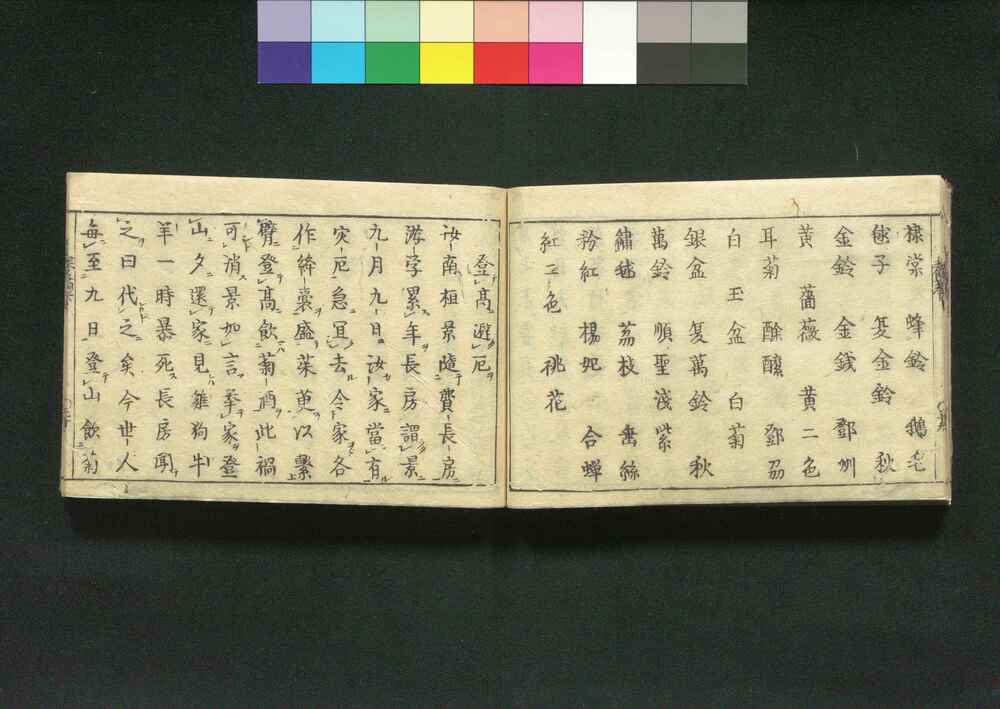 棣棠 蜂鈴 鵝毛
毬子 夏金鈴 秋
金鈴 金錢 鄧州
黄 薔薇 黄二色
耳菊 酴醿 鄧州
白 玉盆 白菊
銀盆 夏萬鈴 秋
萬鈴 順聖淺紫
繡毬 荔枝 垂絲
粉紅 楊妃 合蟬
紅二色 桃花
登髙避厄
汝南桓景隨費長房
游学累年長房謂景
九月九日汝家當有
灾厄急宜去令家各
作絳嚢盛茱萸以繫
臂登髙飲菊酒此禍
可消景如言挙家登
山夕還家見雞狗牛
羊一時暴死長房聞
之曰代之矣今世人
毎至九日登山飲菊